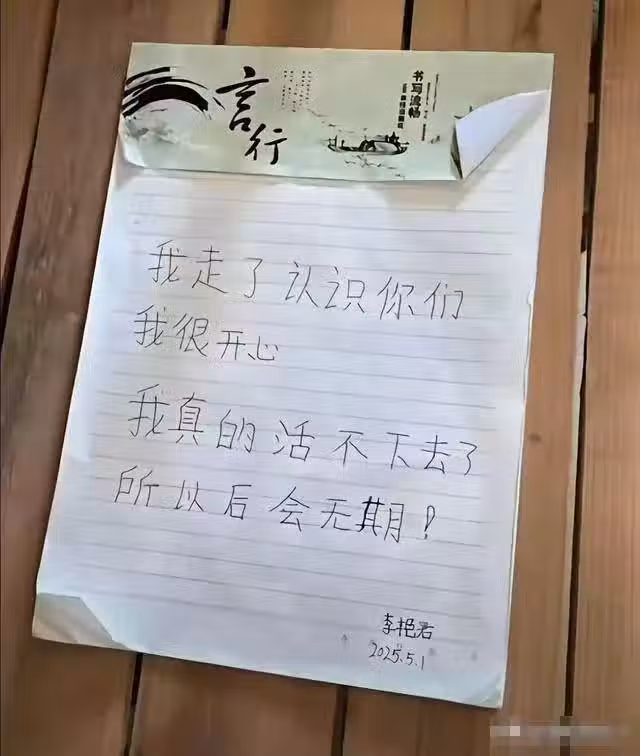 言行
书写流畅
我走了认识你们
我很开心
我真的活不下去了
所以后会无期!
李艳君
2025.5.1